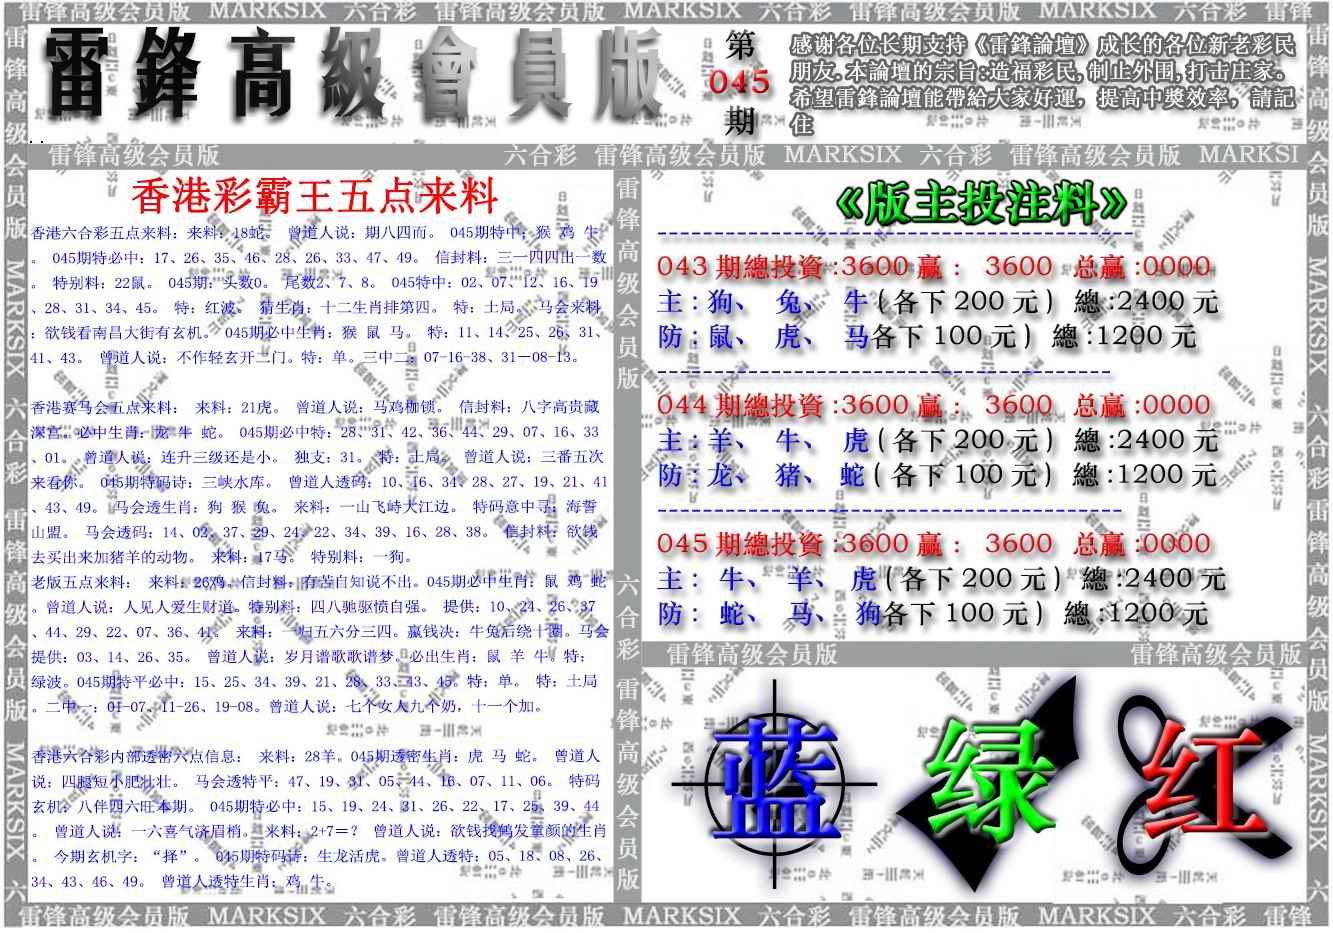 雷锋高级会员版 MARKSIX 六合彩 雷锋高级会员版 MARKSIX 六合彩 雷锋高级会员版 MARKSIX 六合彩 雷锋
雷鋒高級會員版
第
045
期
感谢各位长期支持《雷鋒論壇》成长的各位新老彩民
朋友.本論壇的宗旨:造福彩民,制止外围,打击庄家。
希望雷鋒論壇能帶給大家好運，提高中獎效率，請記
住
雷锋高级会员版 六合彩 雷锋高级会员版 MARKSIX 六合彩 雷锋高级会员版 MARKSI
香港彩霸王五点来料
香港六合彩五点来料：来料：18蛇。 曾道人说：期八四而。 045期特中：猴 鸡 牛
。 045期特必中：17、26、35、46、28、26、33、47、49。 信封料：三一四四出一数
。 特别料：22鼠。 045期：头数0。 尾数2、7、8。 045特中：02、07、12、16、19
、28、31、34、45。 特：红波。 猜生肖：十二生肖排第四。 特：土局。 马会来料
：欲钱看南昌大街有玄机。 045期必中生肖：猴 鼠 马。 特：11、14、25、26、31、
41、43。 曾道人说：不作轻玄开二门。特：单。三中二：07-16-38、31－08-13。
香港赛马会五点来料： 来料：21虎。 曾道人说：马鸡枷锁。 信封料：八字高贵藏
深宫。必中生肖：龙 牛 蛇。 045期必中特：28、31、42、36、44、29、07、16、33
、01。 曾道人说：连升三级还是小。 独支：31。 特：土局。 曾道人说：三番五次
来看你。 045期特码诗：三峡水库。 曾道人透码：10、16、34、28、27、19、21、41
、43、49。 马会透生肖：狗 猴 兔。 来料：一山飞峙大江边。 特码意中寻：海誓
山盟。 马会透码：14、02、37、29、24、22、34、39、16、28、38。 信封料：欲钱
去买出来加猪羊的动物。 来料：17马。 特别料：一狗。
老版五点来料： 来料：26鸡。信封料：有苦自知说不出。045期必中生肖：鼠 鸡 蛇
。曾道人说：人见人爱生财道。特别料：四八驰驱愤自强。 提供：10、24、26、37
、44、29、22、07、36、41。 来料：一归五六分三四。赢钱决：牛兔后绕十圈。马会
提供：03、14、26、35。 曾道人说：岁月谱歌歌谱梦。必出生肖：鼠 羊 牛。特：
绿波。045期特平必中：15、25、34、39、21、28、33、43、45。特：单。 特：土局
。二中一：01-07、11-26、19-08。曾道人说：七个女人九个奶，十一个加。
香港六合彩内部透密六点信息： 来料：28羊。045期透密生肖：虎 马 蛇。 曾道人
说：四腿短小肥壮壮。 马会透特平：47、19、31、05、44、16、07、11、06。 特码
玄机：八伴四六旺本期。 045期特必中：15、19、24、31、26、22、17、25、39、44
。 曾道人说：一六喜气济眉梢。 来料：2+7＝？ 曾道人说：欲钱找鹤发童颜的生肖
。 今期玄机字：“择”。 045期特码诗：生龙活虎。曾道人透特：05、18、08、26、
34、43、46、49。 曾道人透特生肖：鸡 牛。
《版主投注料》
043 期總投資 :3600 赢： 3600 总赢 :0000
主 : 狗、 兔、 牛 ( 各下 200 元 ) 總 :2400 元
防 : 鼠、 虎、 马各下 100 元 ) 總 :1200 元
044 期總投資 :3600 赢： 3600 总赢 :0000
主 : 羊、 牛、 虎 ( 各下 200 元 ) 總 :2400 元
防 : 龙、 猪、 蛇 ( 各下 100 元 ) 總 :1200 元
045 期總投資 :3600 赢： 3600 总赢 :0000
主 : 牛、 羊、 虎 (各下 200 元 ) 總 :2400 元
防 : 蛇、 马、 狗各下 100 元 ) 總 :1200 元
雷锋高级会员版 雷锋高级会员版
蓝 绿 红
雷锋高级会员版 MARKSIX 六合彩 雷锋高级会员版 MARKSIX 六合彩 雷锋高级会员版 MARKSIX 六合彩 雷锋